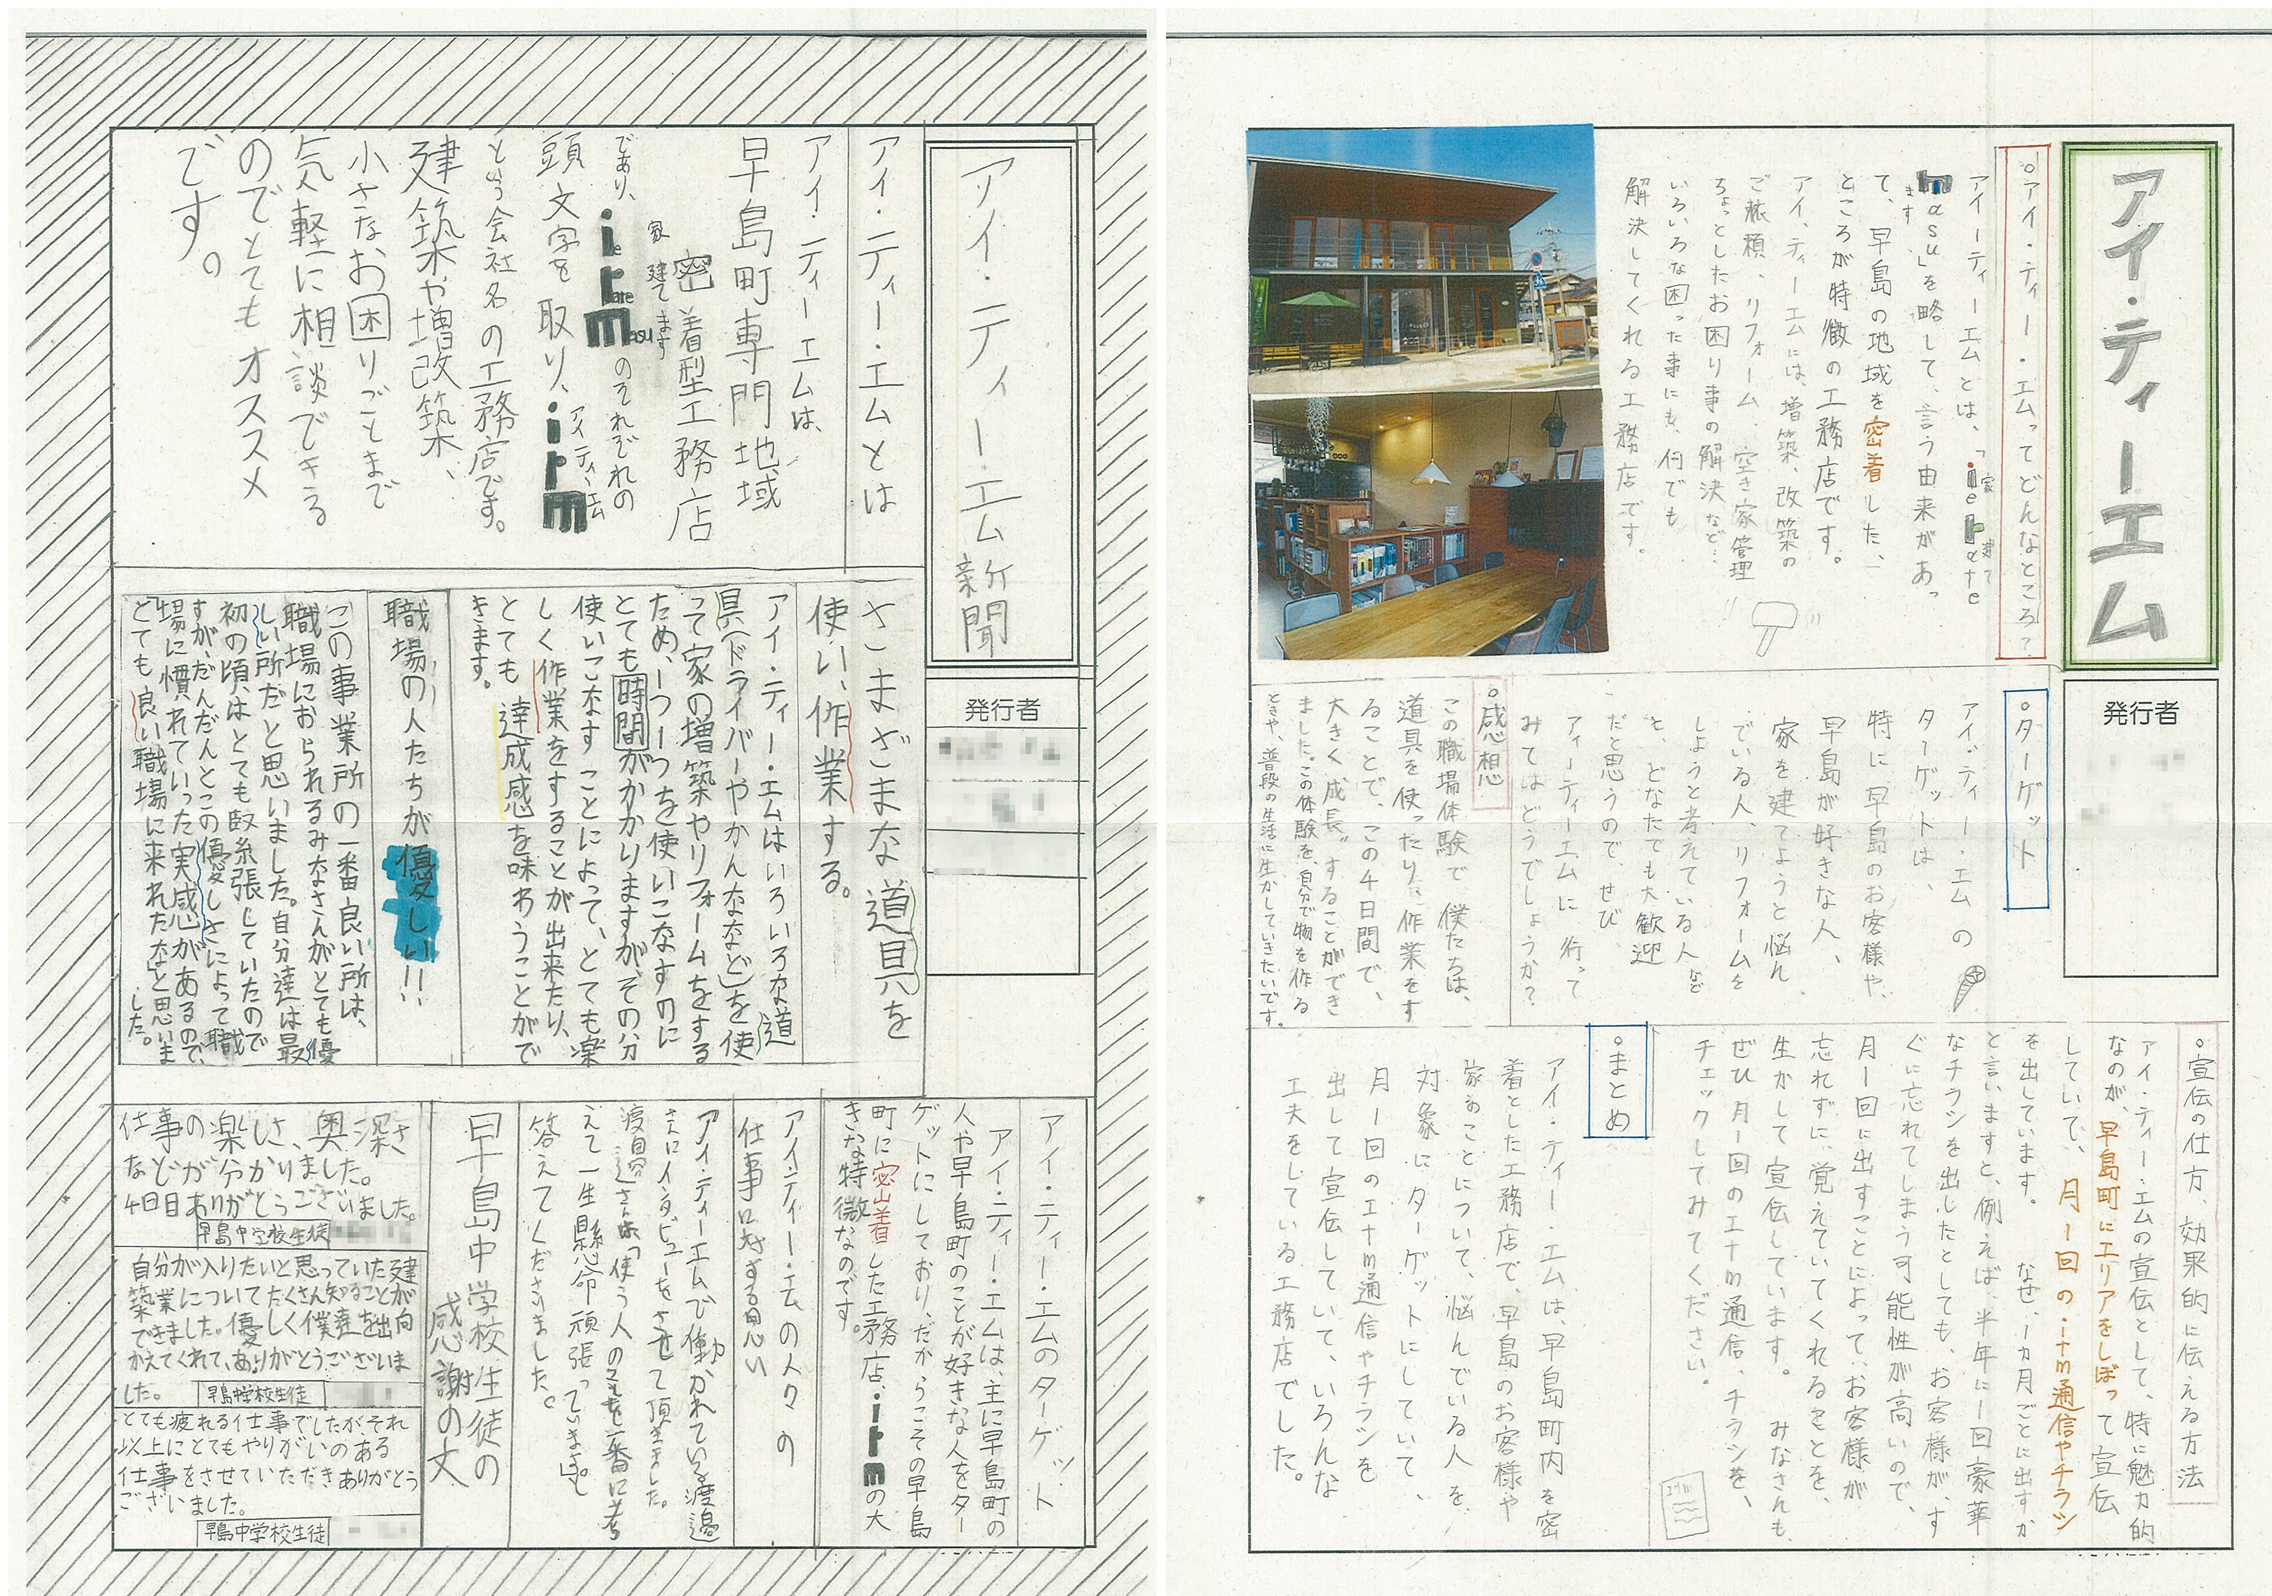 アイ・ティー・エム新聞
発行者
アイ・ティー・エムとは
アイ・ティーエムは、
早島町専門地域
密着型工務店
家 建てます
であり、ie rate masuのそれぞれの
頭文字を取り、irm
アイ、ティ、エム
という会社名の工務店です。
建築や増改築、
小さなお困りごとまで
気軽に相談できる
のでとてもオススメ
です。
さまざまな道具を
使い、作業する。
アイ・ティー・エムはいろいろな道
具(ドライバーやかんななど)を使
って家の増築やリフォームをする
ため、一つ一つを使いこなすのに
とても時間がかかりますがその分
使いこなすことによって、とても楽
しく作業をすることが出来たり、
とても達成感を味わうことがで
きます。
職場の人たちが優しい!!
この事業所の一番良い所は、
職場におられるみなさんがとても優
しい所だと思いました。自分達は最
初の頃はとても緊張していたので
すが、だんだんとこの優しさによって職
場に慣れていった実感があるので、
とても良い職場に来れたなと思いま
した。
アイ・ティー・エムのターゲット
アイ・ティー・エムは、主に早島町の
人や早島町のことが好きな人をター
ゲットにしており、だからこその早島
町に密着した工務店、irmの大
きな特徴なのです。
アイ・ティー・エムの人々の
仕事に対する思い
アイ・ティーエムで働かれている渡邉
さんにインタビューをさせて頂きました。
渡邉さんは「使う人のことを一番に考
えて一生懸命頑張っています。」と
答えてくださいました。
早島中学校生徒の
感謝の丈
仕事の楽しさ、奥深さ
などが分かりました。
4日目ありがとうございました。
早島中学校生徒
自分が入りたいと思っていた建
築業についてたくさん知ることが
できました。優しく僕達を出向
かえてくれて、ありがとうございま
した。
早島中学校生徒
とても疲れる仕事でしたが、それ
以上にとてもやりがいのある
仕事をさせていただきありがとう
ございました。
早島中学校生徒
アイ・ティーエム
発行者
○アイ・ティー・エムってどんなところ?
アイーティーエムとは、「ie tate
家 建て
masu」を略して、言う由来があっ
ます
て、早島の地域を密着した、
ところが特徴の工務店です。
アイ、ティーエムには、増築、改築の
ご依頼、リフォーム、空き家管理
ちょっとしたお困り事の解決など…
いろいろな困った事にも、何でも
解決してくれる工務店です。
○ターゲット
アイ・ティー・エムの
ターゲットは、
特に早島のお客様や、
早島が好きな人、
家を建てようと悩ん
でいる人、リフォームを
しようと考えている人など
と、どなたでも大歓迎
だと思うので、ぜひ
アィーティーエムに行って
みてはどうでしょうか?
○感想
この職場体験で僕たちは、
道具を使ったり、作業をす
ることで、この4日間で、
大きく"成長"することができ
ました。この体験を、自分で物を作る
ときや、普段の生活に生かしていきたいです。
○宣伝の仕方、効果的に伝える方法
アイ・ティー・エムの宣伝として、特に魅力的
なのが、早島町にエリアをしぼって宣伝
していて、月1回のitm通信やチラシ
を出しています。なぜ、1カ月ごとに出すか
と言いますと、例えば、半年に1回豪華
なチラシを出したとしても、お客様が、す
ぐに忘れてしまう可能性が高いので、
月一回に出すことによって、お客様が
忘れずに、覚えていてくれることを、
生かして宣伝しています。みなさんも、
ぜひ月一回のitm通信、チラシを、
チェックしてみてください。
○まとめ
アイ・ティー・エムは、早島町内を密
着とした工務店で、早島のお客様や
家のことについて、悩んでいる人を、
対象にターゲットにしていて、
月1回のitm通信やチラシを
出して宣伝していて、いろんな
工夫をしている工務店でした。